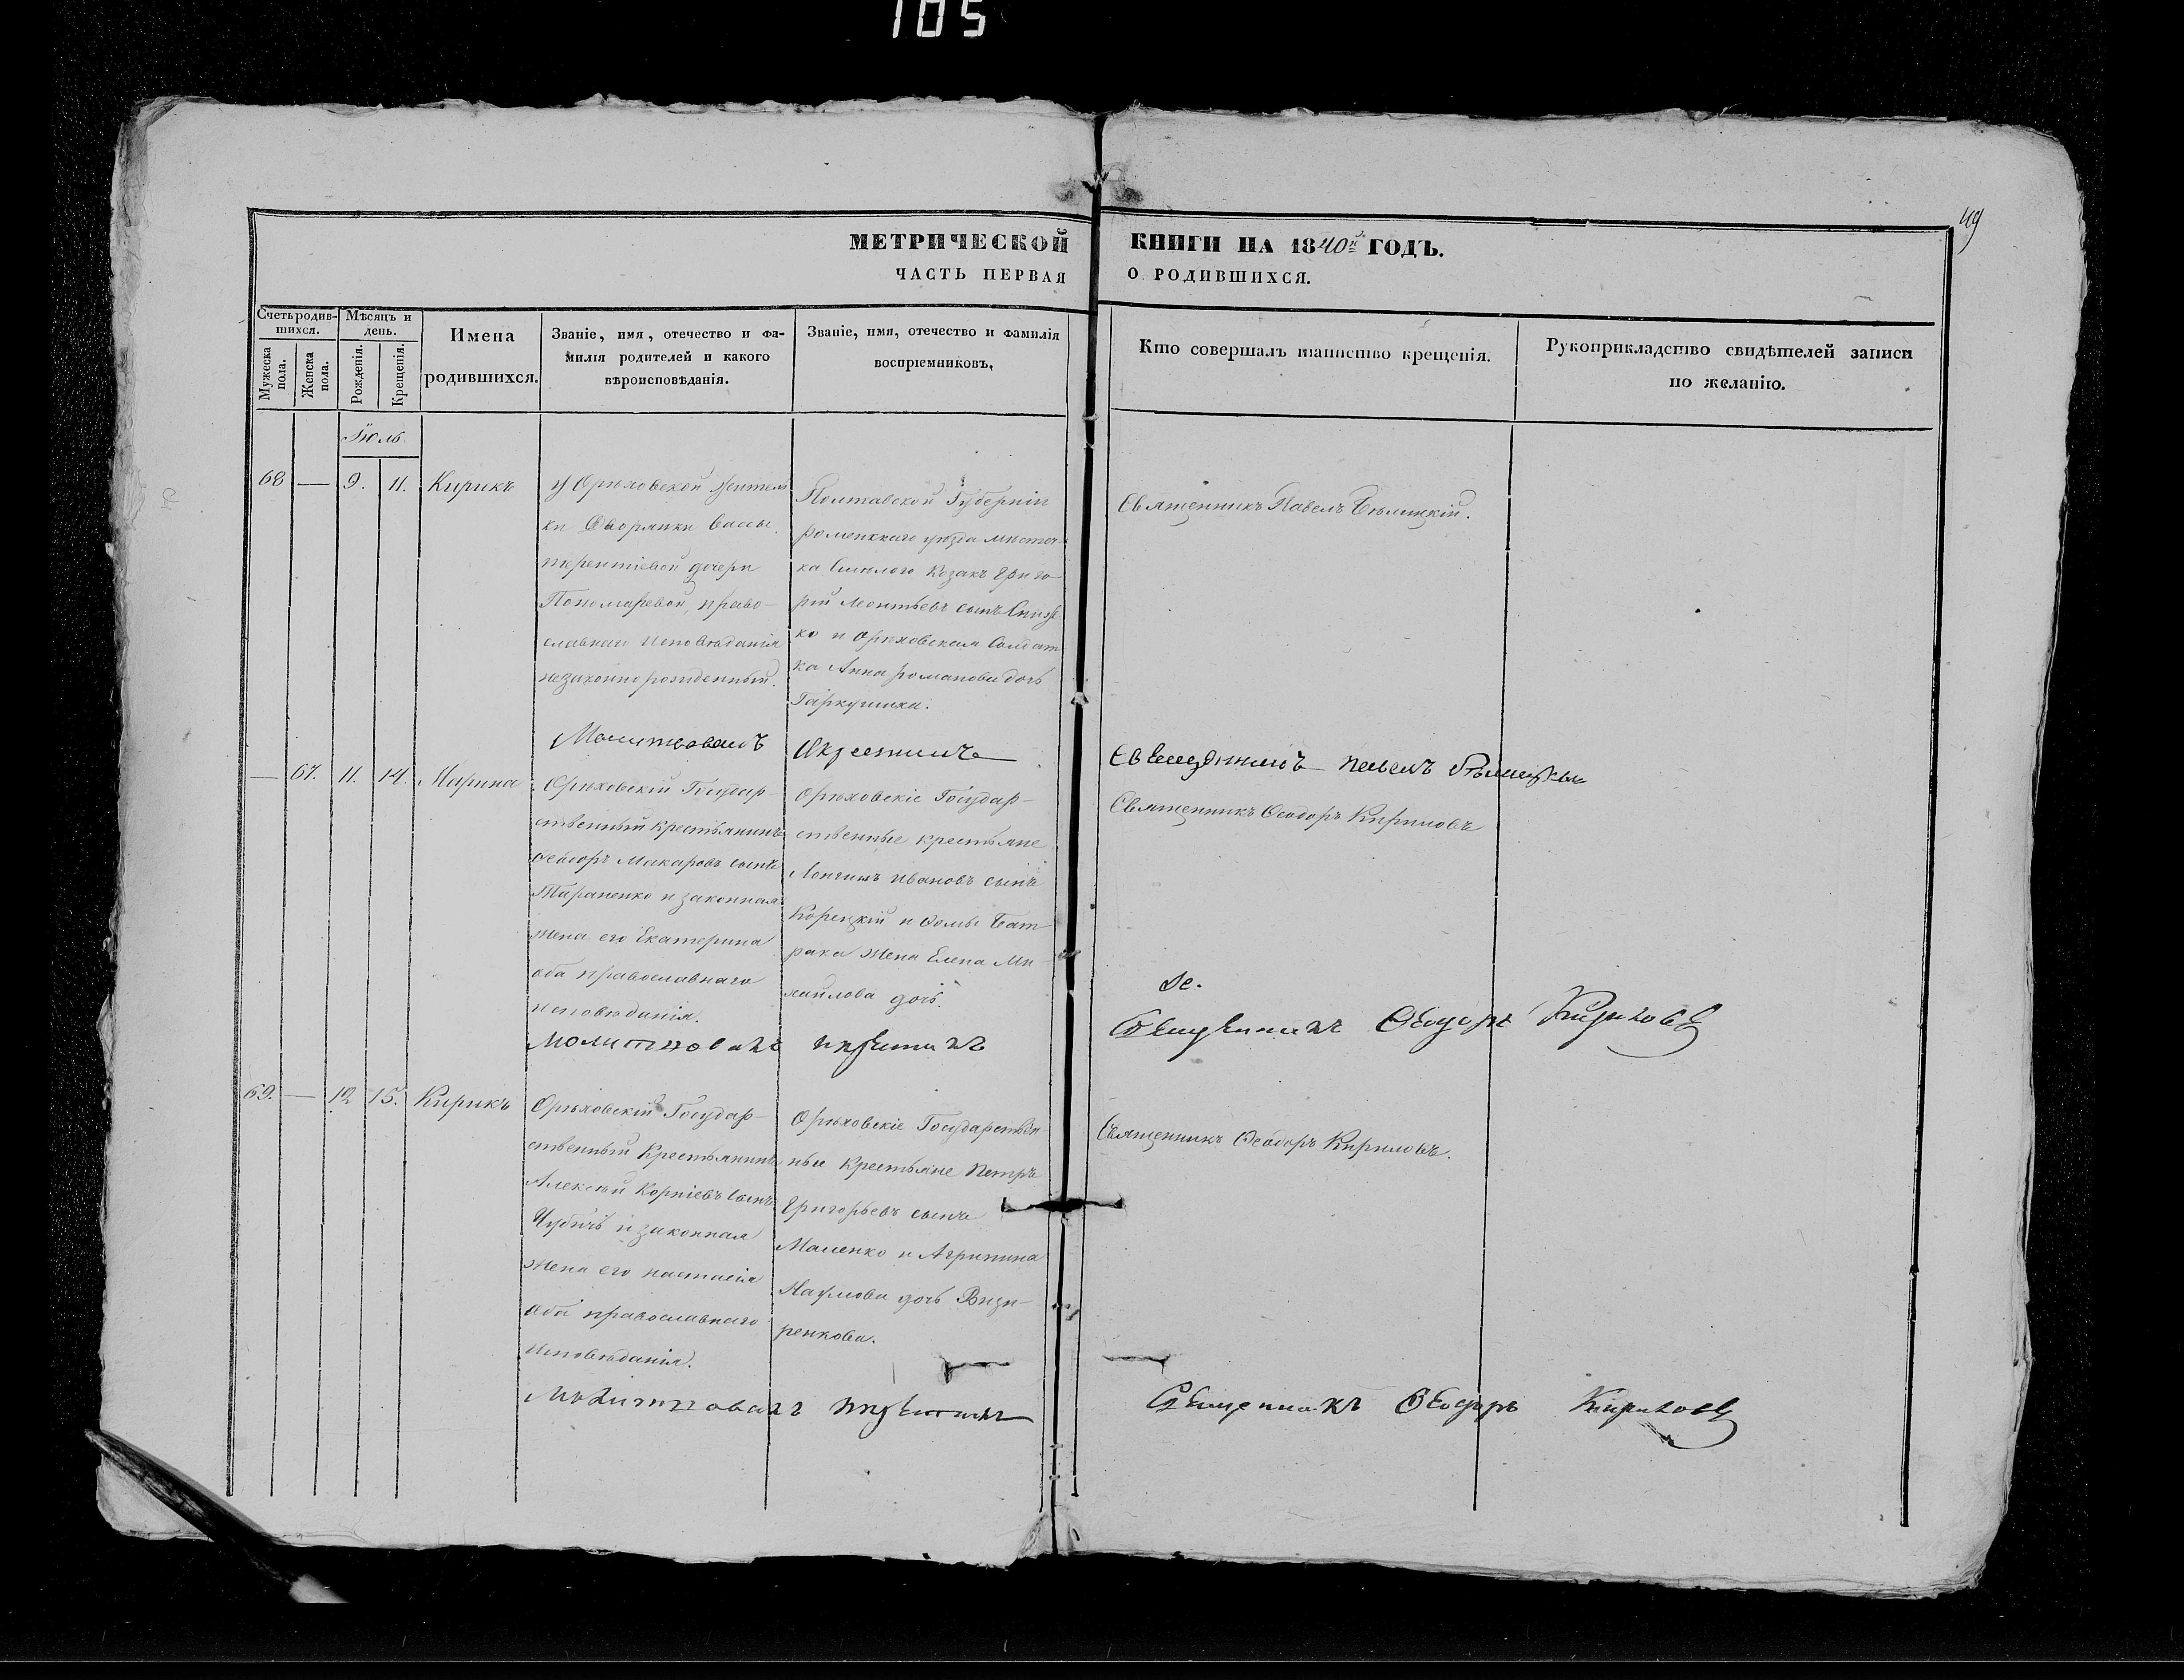 105
49
МЕТРИЧЕСКОЙ КНИГИ НА 1840й ГОДЪ.
ЧАСТЬ ПЕРВАЯ О РОДИВШИХСЯ.
Счетъ родив-
шихся.
Мужеска
пола.
Женска
пола.
Мѣсяцъ и
день.
Рожденія.
Крещенія.
Имена
родившихся.
Званіе, имя, отечество и фа-
милія родителей и какого
вѣроисповѣданія.
Званіе, имя, отечество и фамилія
воспріемниковъ,
Кто совершалъ таинство крещенія.
Рукоприкладство свидѣтелей записи
по желанію.
Іюль
68 — 9. 11. Кирикъ
У Орѣховской жител
ки Дворянки Вассы
терентіевой дочери
Пономаревой, право-
славнаго Исповѣданія
незаконнорожденный.
Полтавской Губерніи
роменскаго уѣзда мѣстеч-
ка Смѣлого Козакъ Григо-
рій Леонтьевъ сынъ
ко и Орѣховская Солдат
ка Анна романова дочь
Гаркушина.
Священникъ Павелъ Бѣлицкій.
Молитвовалъ Окрестилъ
Священникъ Павелъ Бѣлицкій
— 67. 11. 14. Марина
Орѣховскій Государ-
ственный крестьянинъ
Ѳеодоръ Макаровъ сынъ
Тараненко и законная
жена его Екатерина
оба православнаго
исповѣданія.
Орѣховскіе Государ-
ственные крестьяне
Лонгинъ Ивановъ сынъ
Корецкій и Ѳомы Бат-
рака жена Елена Ми-
хайлова дочь.
Священникъ Ѳеодоръ Кириловъ
Ѳе.
Молитвовалъ икрестилъ
Священникъ Ѳеодоръ Кириловъ
69. — 12 15. Кирикъ
Орѣховскій Государ-
ственный Крестьянинъ
Алексѣй Корніевъ сынъ
Чубичъ и законная
жена его настасія
оба православнаго
Исповѣданія.
Орѣховскіе Государствен-
ные Крестьяне Петръ
Григорьевъ сынъ
Маленко и Агрипина
Наумова дочь Визи-
ренкова.
Священникъ Ѳеодоръ Кириловъ.
Молитвовалъ икрестилъ
Священникъ Ѳеодоръ Кириловъ